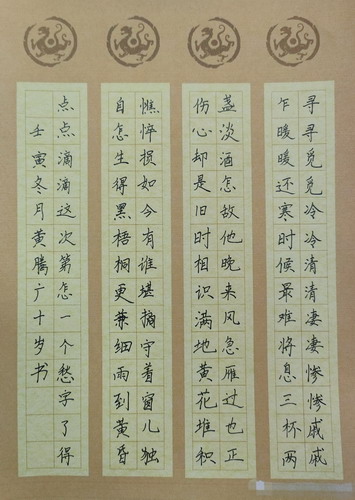 寻寻觅觅冷冷清清凄凄惨惨戚戚
乍暖暖还寒时候最难将息三杯两
盏淡酒怎故他晚来风急雁过也正
伤心却是旧时相识满地黄花堆积
憔悴损如今有谁堪摘守着窗儿独
自怎生得黑梧桐更兼细雨到黄昏
点点滴滴这次第怎一个愁字了得
壬寅冬月黄腾广十岁书